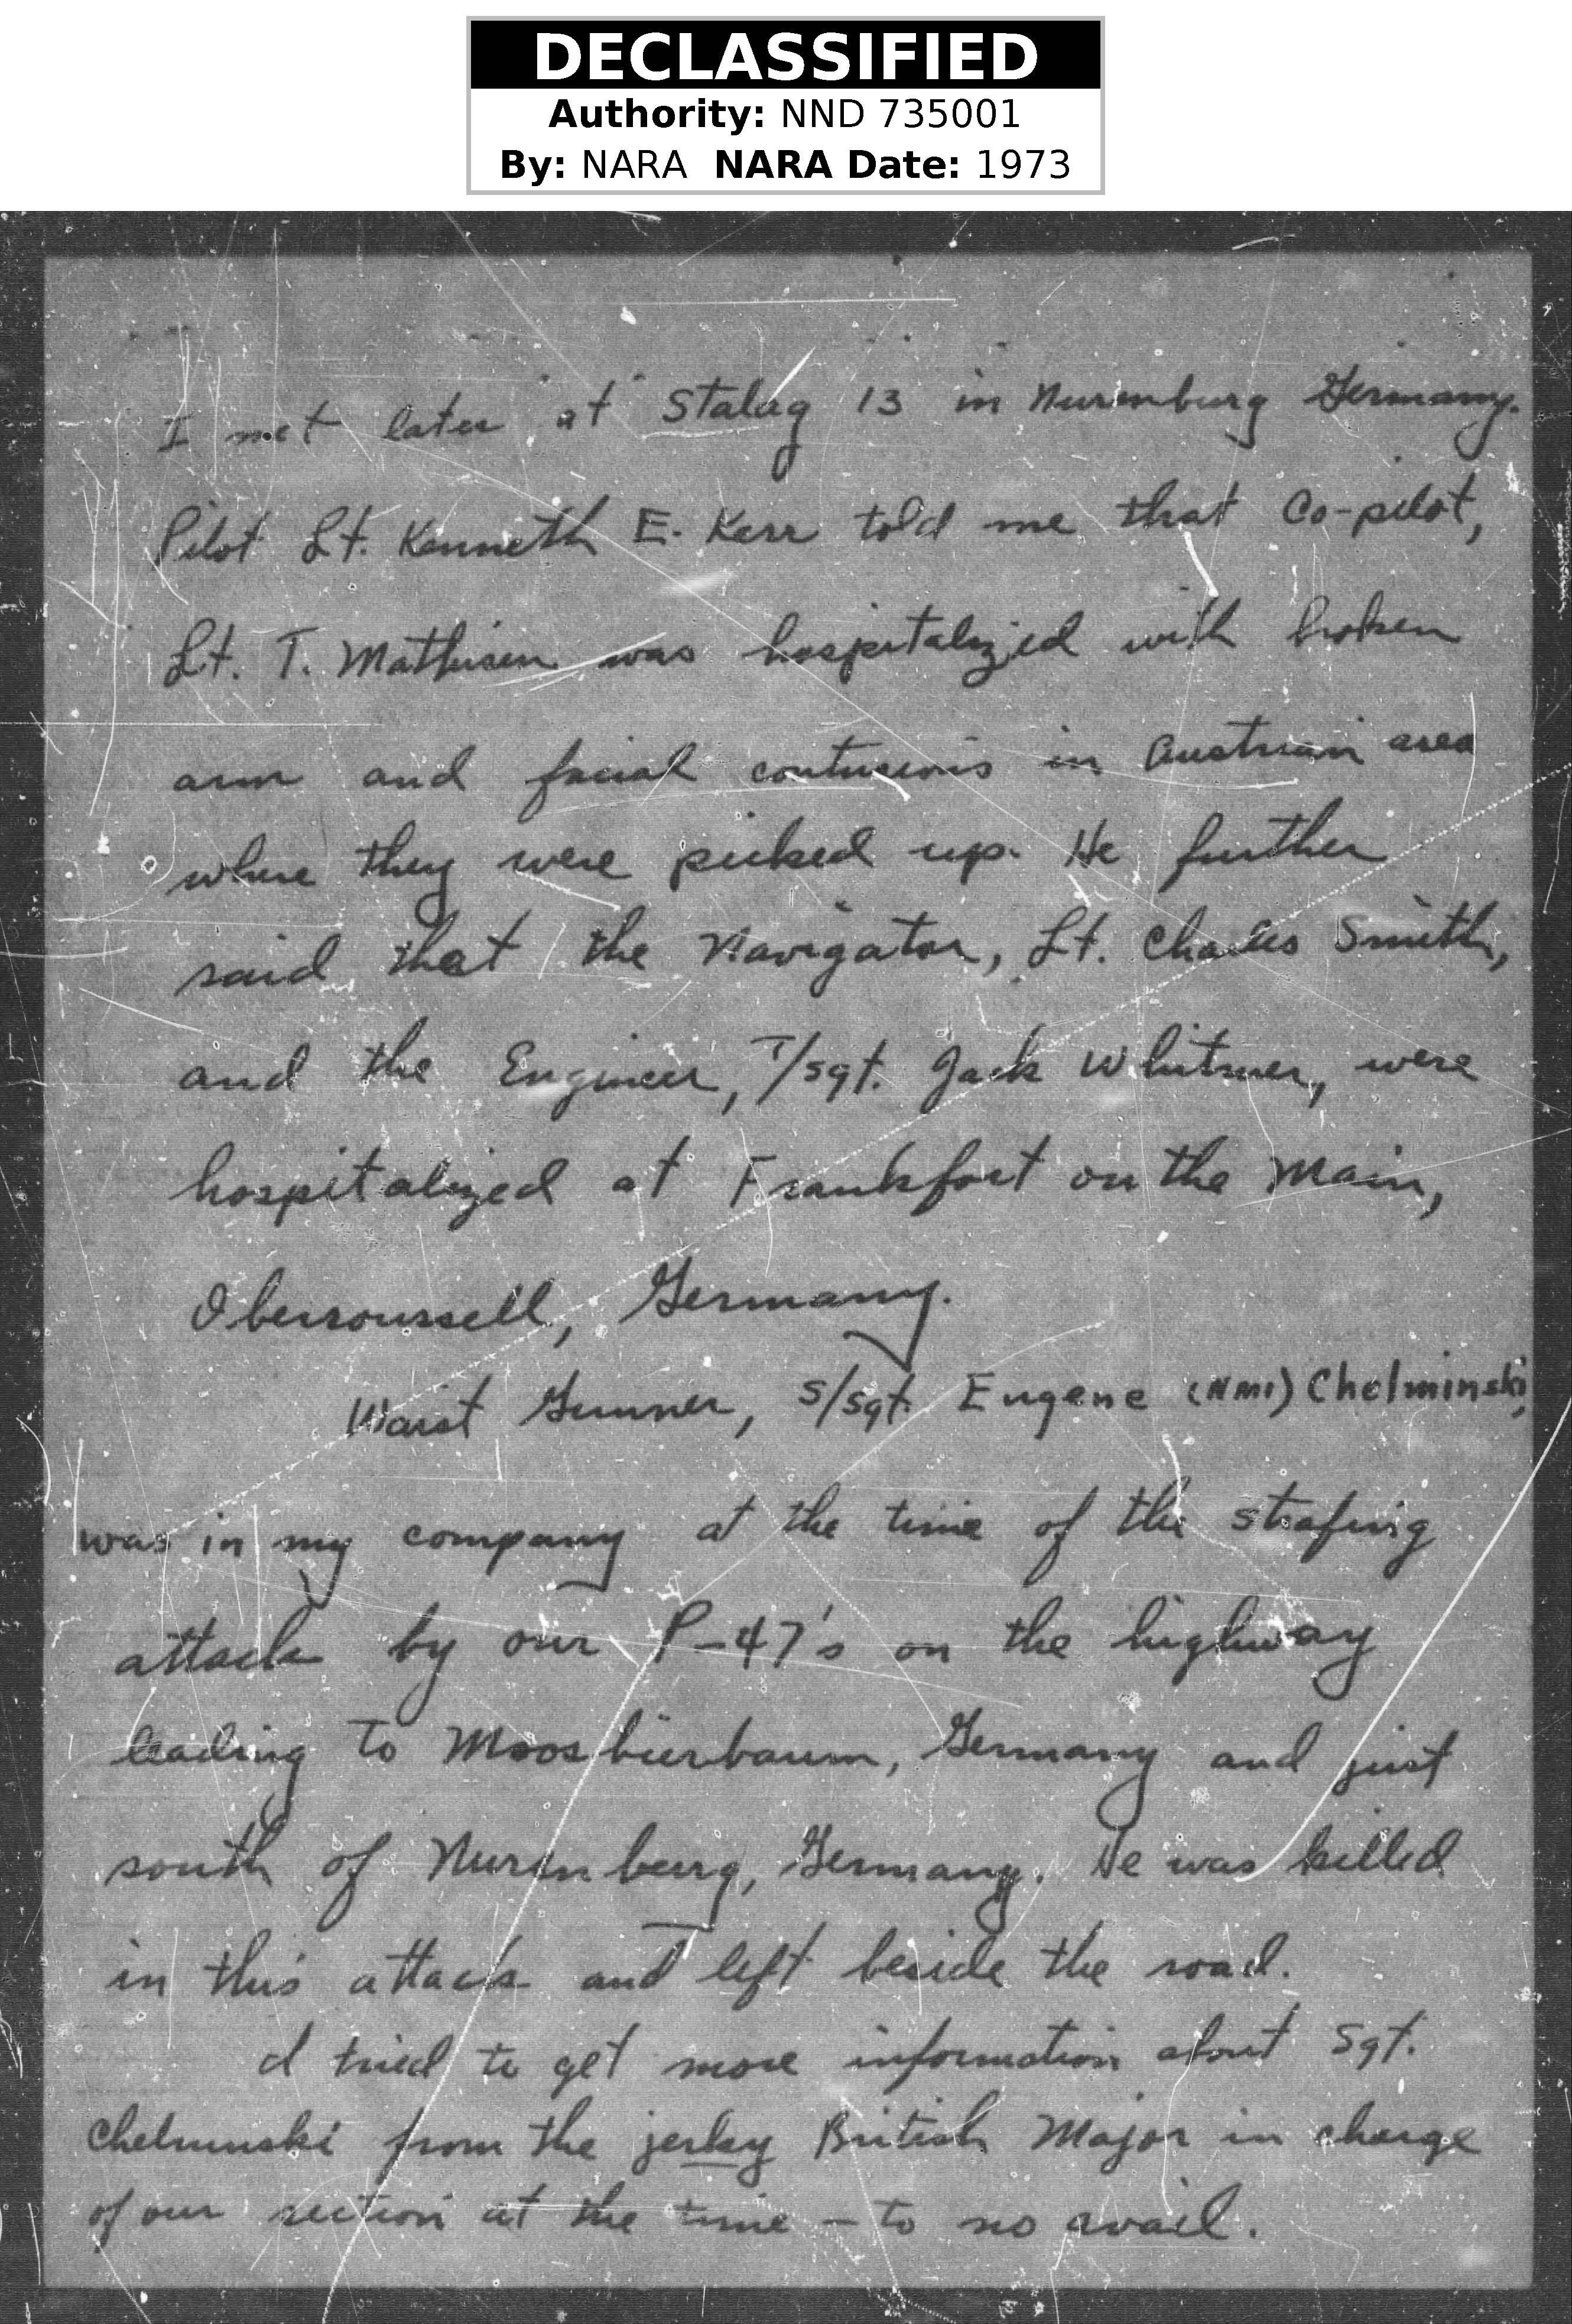 DECLASSIFIED
Authority: NND 735001
By: NARA NARA Date: 1973
I met later at Stalag 13 in Nuremburg Germany.
Pilot Lt. Kenneth E. Kerr told me that Co-pilot,
Lt. T. Mathisen was hospitalized with broken
arm and facial contusions in Austrian area
where they were picked up. He further
said that the Navigator, Lt. Charles Smith,
and the Engineer, T/Sgt. Jack Whitmer, were
hospitalized at Frankfort on the Main,
Oberroussell, Germany.
Waist Gunner, S/Sgt. Eugene (NMI) Chelminski,
was in my company at the time of the strafing
attack by our P-47's on the highway
leading to Moosbierbaum, Germany and just
south of Nuremburg, Germany. He was killed
in this attack and left beside the road.
I tried to get more information about Sgt.
Chelminski from the jerky British Major in charge
of our section at the time - to no avail.